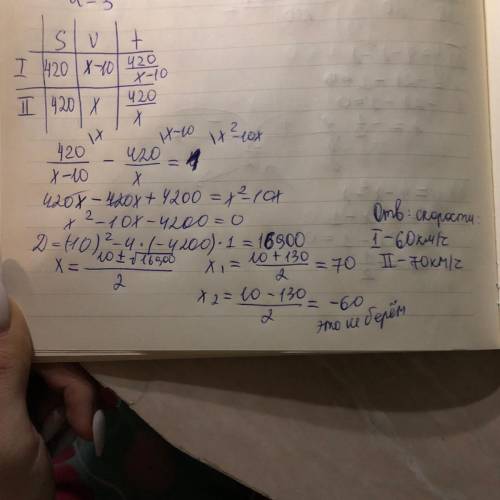 S V t
I 420 x-10 420/(x-10)
II 420 x 420/x
\x \x-10 \x²-10x
420/(x-10) - 420/x = 1
420x-420x+4200=x²-10x
x²-10x-4200=0
D=(-10)²-4·(-4200)·1=16900
x=(10±√16900)/2 x₁=(10+130)/2=70
x₂=(10-130)/2=-60
это не берём
Отв: скорости:
I-60км/ч
II-70км/ч